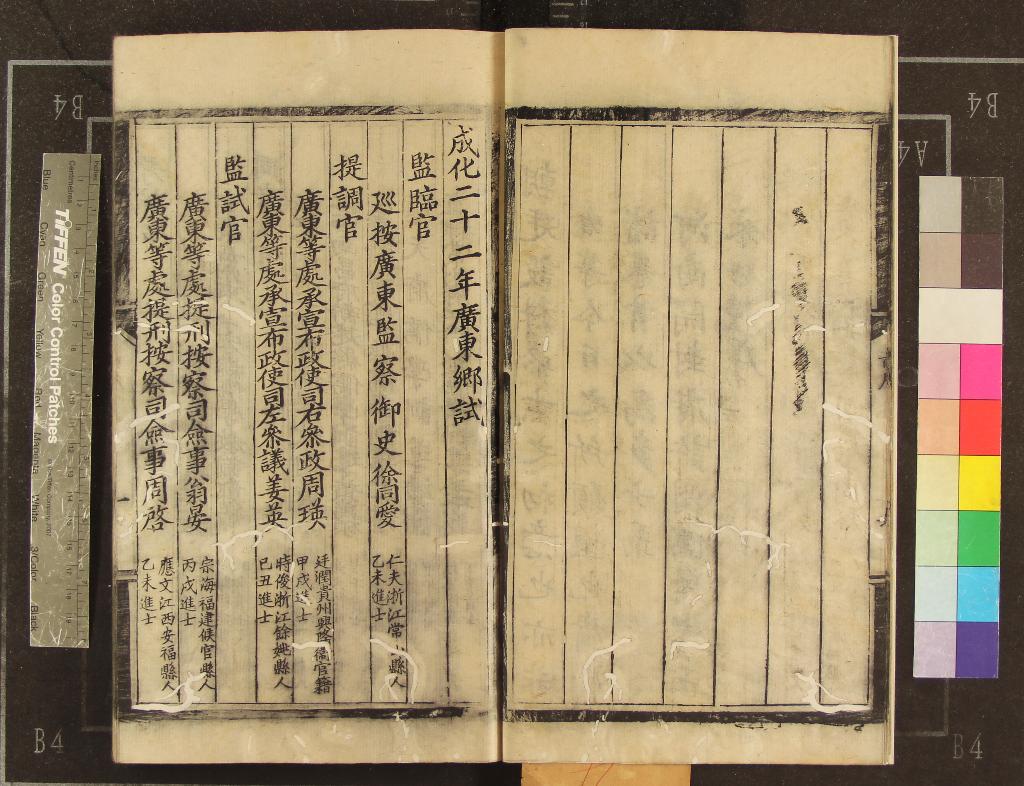 成化二十二年廣東鄉試
監臨官
廵按廣東監察御史徐同愛
仁夫浙江常山縣人
乙未進士
提調官
廣東等處承宣布政使司右參政周瑛
廷潤貴州興隆衞官籍
甲戌進士
廣東等處承宣布政使司左參議姜英
時俊浙江餘姚縣人
己丑進士
監試官
廣東等處提刑按察司僉事翁晏
宗海福建候官縣人
丙戌進士
廣東等處提刑按察司僉事周啓
應文江西安福縣人
乙未進士
B4
B4
A4
B4
B4
TIFFEN Color Control Patches
Centimetres
Blue
Cyan
Green
Yellow
Red
Magenta
White
3/Color
Black